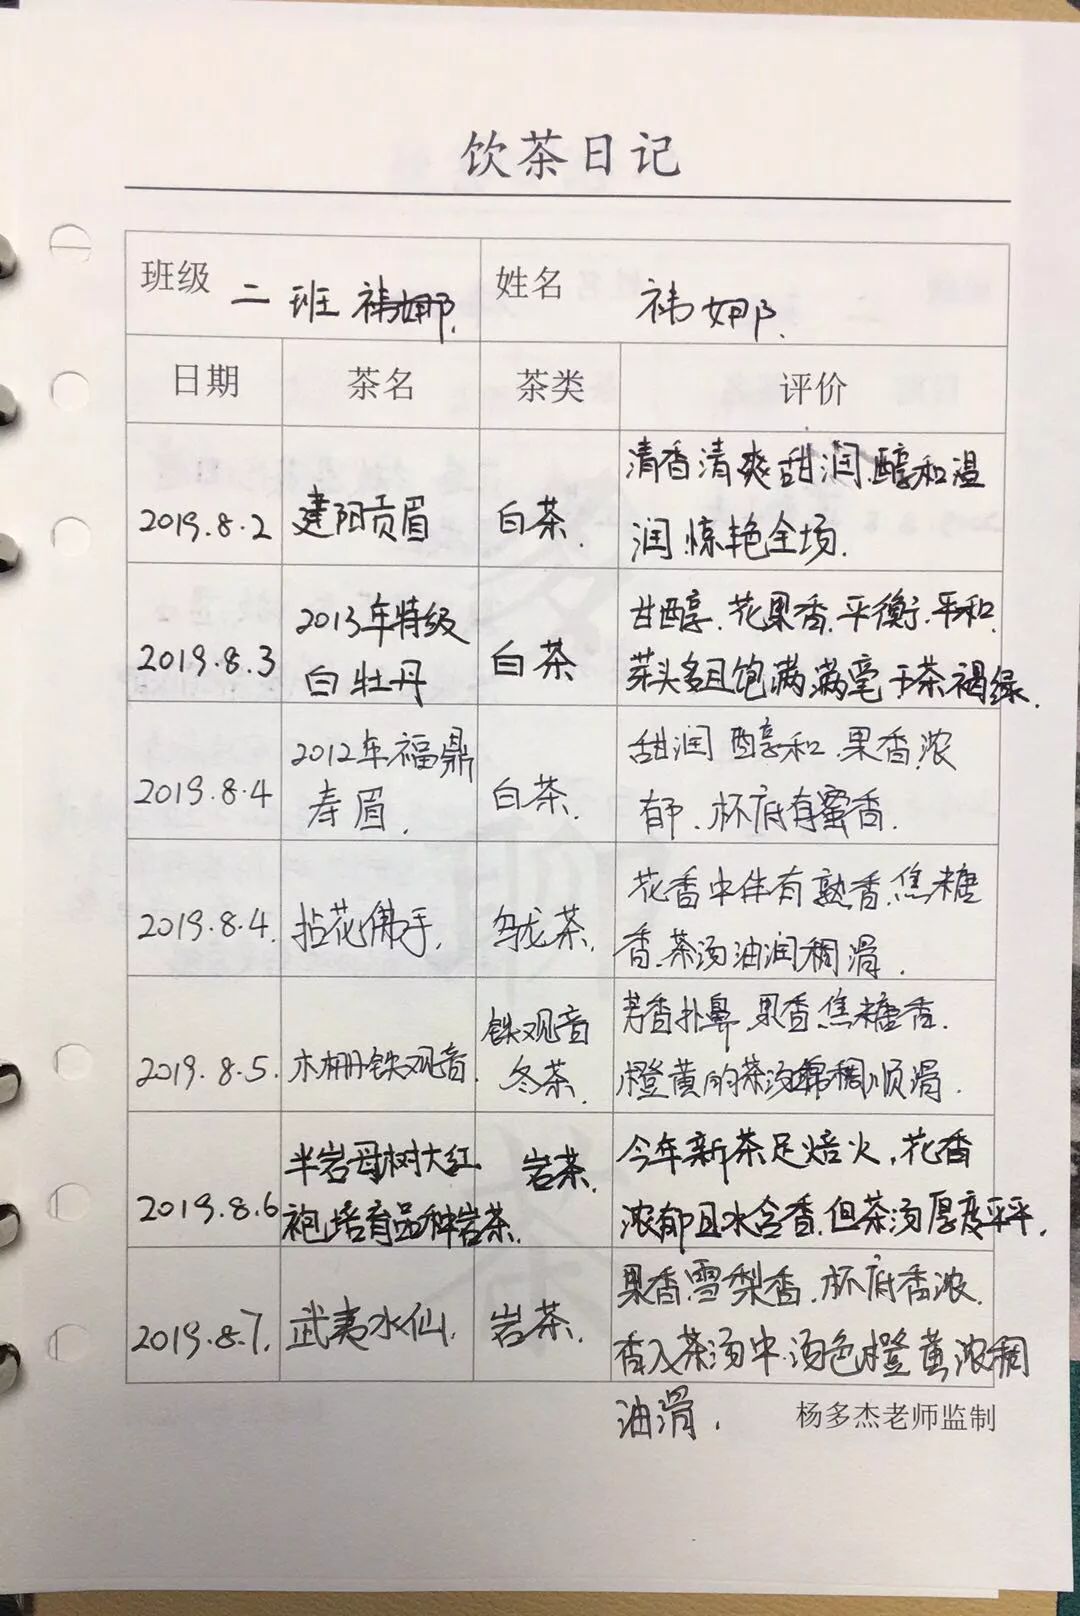 饮茶日记
班级 二班 祎娜. 姓名 祎娜.
日期 茶名 茶类 评价
2019.8.2 建阳贡眉 白茶.
清香清爽甜润.醇和温
润.惊艳全场.
2019.8.3
2013年特级
白牡丹
白茶
甘醇.花果香.平衡.平和.
芽头多且饱满.满毫.干茶褐绿.
2019.8.4
2012年福鼎
寿眉.
白茶.
甜润 醇和.果香浓
郁.杯底有蜜香.
2019.8.4. 拈花佛手. 乌龙茶.
花香中伴有熟香.焦糖
香.茶汤油润稠滑.
2019.8.5. 木栅铁观音.
铁观音
冬茶.
芳香扑鼻.果香.焦糖香.
橙黄的茶汤绵稠顺滑.
2019.8.6
半岩母树大红
袍.培育品种岩茶.
岩茶.
今年新茶足焙火,花香
浓郁且水含香.但茶汤厚度平平.
2019.8.7. 武夷水仙. 岩茶.
果香.雪梨香.杯底香浓.
香入茶汤中.汤色橙黄浓稠
油滑.
杨多杰老师监制